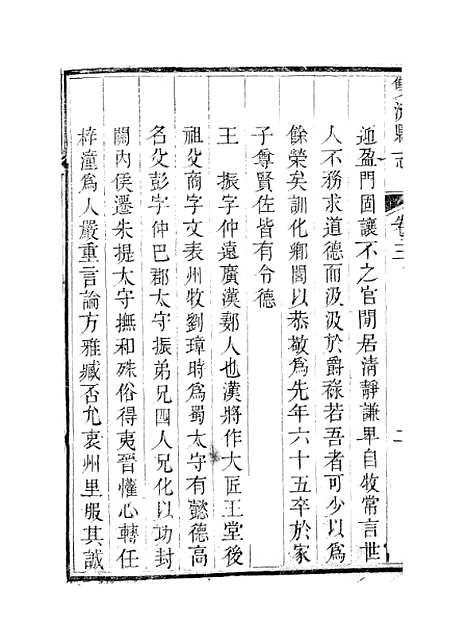 卷三
二
迎盈門固讓不之官閒居清靜謙卑自牧常言世
人不務求道德而汲汲於爵祿若吾者可少以為
餘榮矣訓化鄉閭以恭敬為先年六十五卒於家
子尊賢佐皆有令德
王　振字仲遠廣漢郪人也漢將作大匠王堂後
祖父商字文表州牧劉璋時為蜀太守有懿德高
名父彭字仲巴郡太守振弟兄四人兄化以功封
關內侯遷朱提太守撫和殊俗得夷晉懽心轉任
梓潼為人嚴重言論方雅臧否允衷州里服其誠